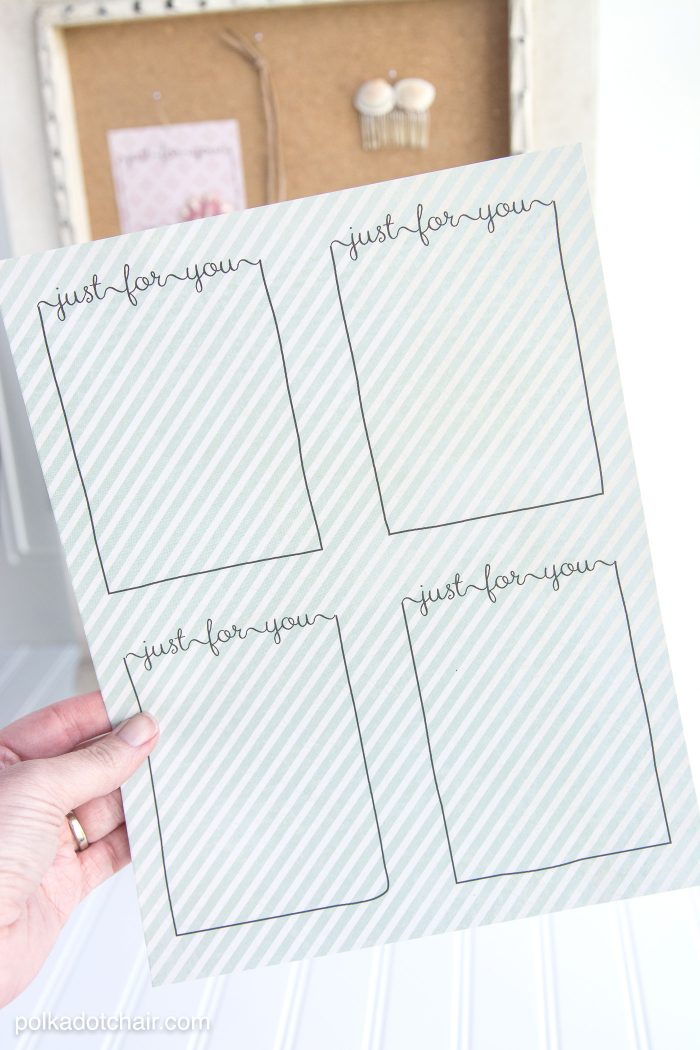 just for you
just for you
just for you
just for you
just for you
polkadotchair.com